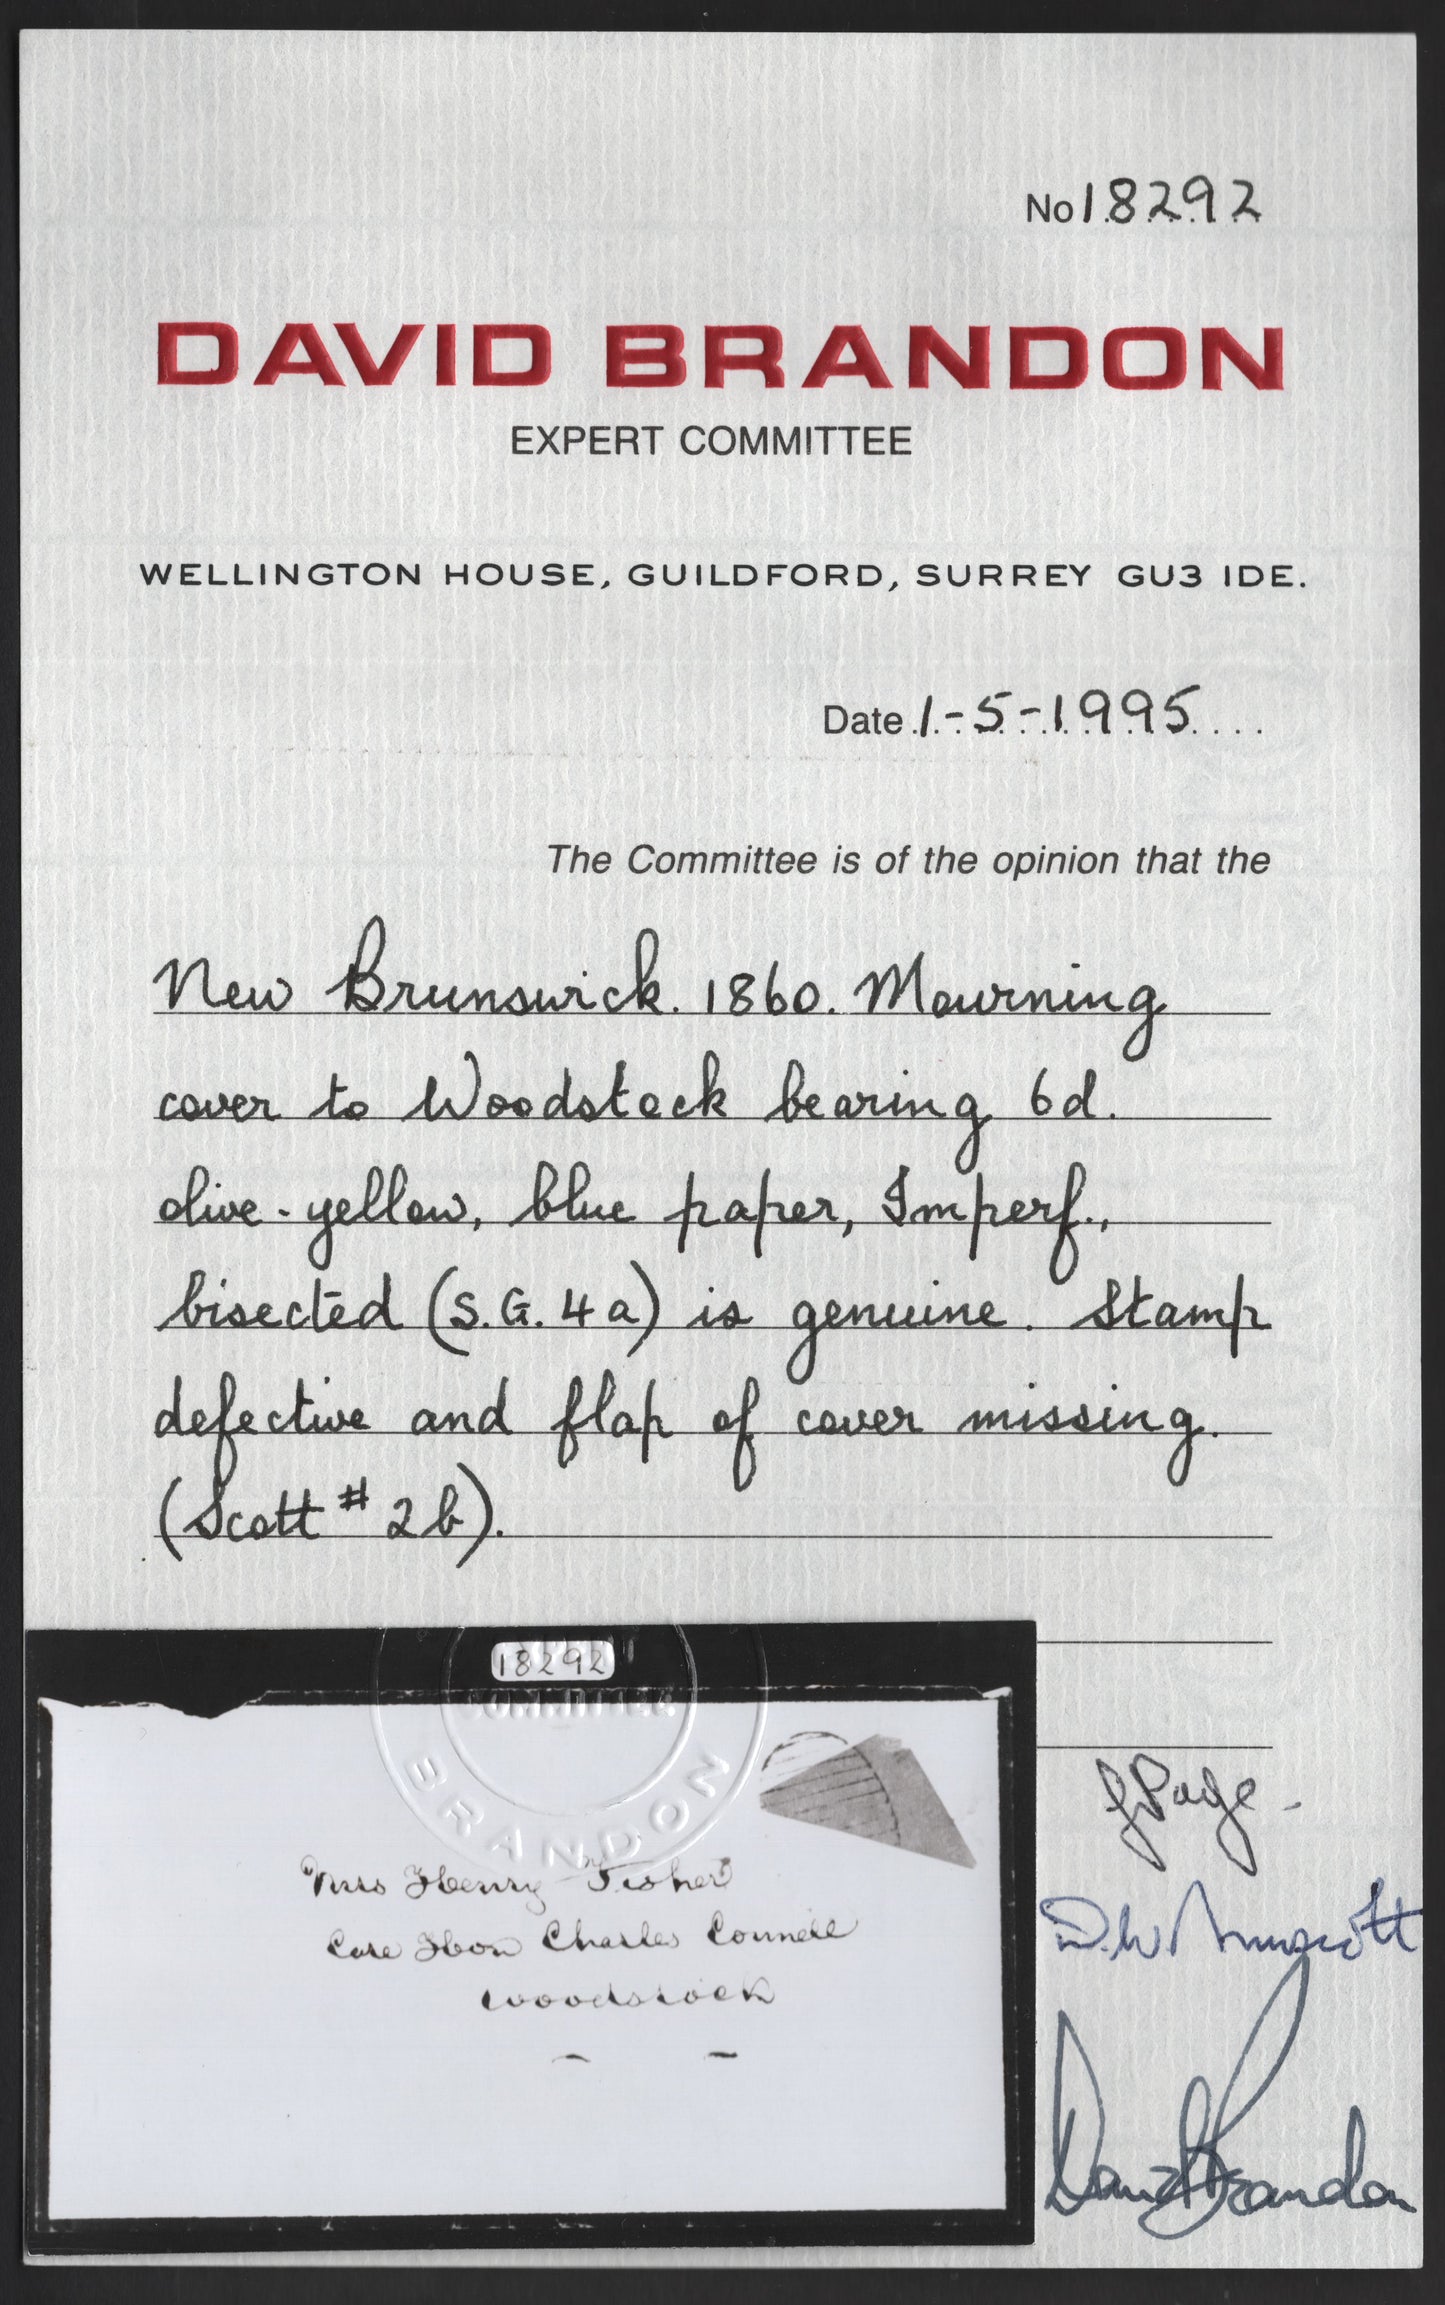 No 18292
DAVID BRANDON
EXPERT COMMITTEE
WELLINGTON HOUSE, GUILDFORD, SURREY GU3 1DE.
Date 1-5-1995....
The Committee is of the opinion that the
New Brunswick. 1860. Mourning
cover to Woodstock bearing 6d.
olive-yellow, blue paper, Imperf.,
bisected (S.G. 4a) is genuine. Stamp
defective and flap of cover missing.
(Scott # 2b).
18292
COMMITTEE
BRANDON
Mrs Henry Fisher
Care Hon Charles Connell
Woodstock
Page
D.W.
David Brandon